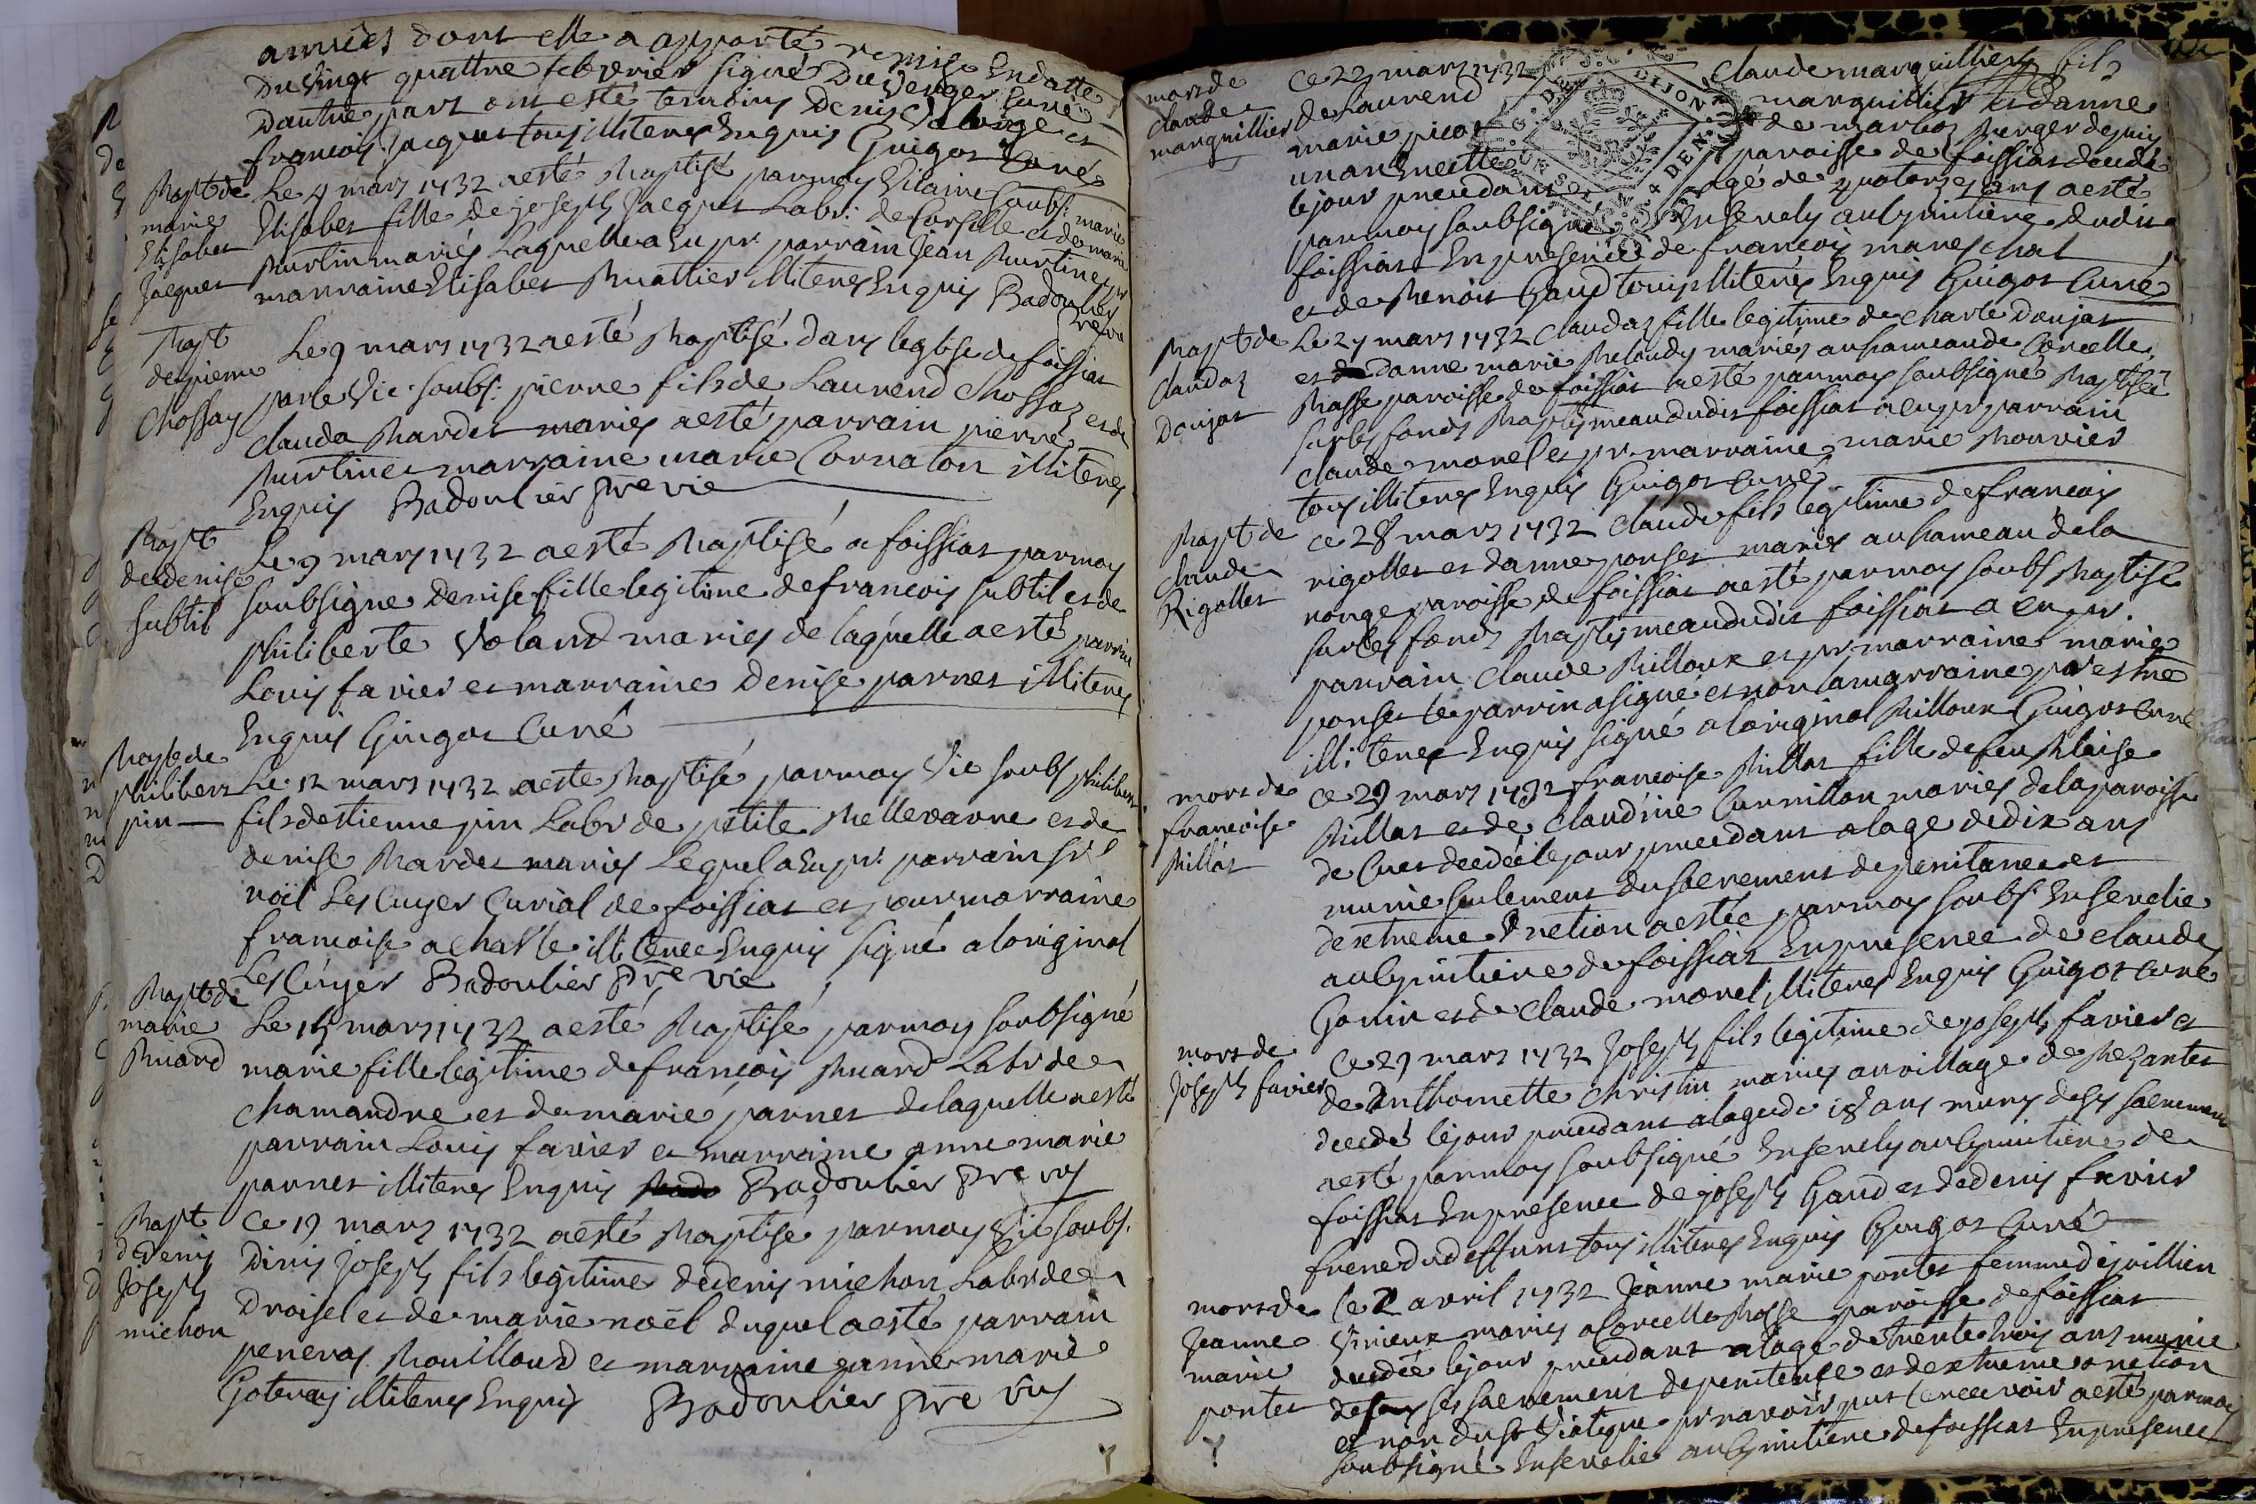 années dont elle a apporté remise En datte
Du vingt quattre febvrier signé Du verger Curé
Dautre part ont esté temoins Denis et
francois Jacquet tous illiterés Enquis Guigot Curé
Bapt de
marie
Elisabet
Jacquet
Le 4 mars 1732 a esté Baptisé par moy Vicaire soubs: marie
Elisabet fille de joseph Jacquet Labr: de Corselle et de marie
Burtin mariés Laquelle a Eu pr parrain Jean Burtin et pr
marraine Elisabet Buattier illiterés Enquis Badoulier
Pre vic
Bapt
de pierre
Chossay
Le 9 mars 1732 a esté Baptisé dans leglise de foissiat
par le Vic: soubs: pierre fils de Laurend Chossaz et de
Clauda Bardet mariés a esté parrain pierre
Burtin et marraine marie Cornaton illiterés
Enquis Badoulier Pre vic
Bapt
de denise
subtil
Le 9 mars 1732 a esté Baptisé a foissiat par moy
soubsigné Denise fille legitime de francois subtil et de
philiberte Voland mariés de laquelle a esté parrin
Louis favier et marraine Denise parnet illiterés
Enquis Guigot Curé
Bapt de
philibert
pin
Le 12 mars 1732 a esté Baptisé par moy Vic soubs philibert
fils destienne pin Labr de petite Bellevavre et de
denise Bardet mariés Lequel a Eu pr: parrain sr
noël Lescuyer Curial de foissiat et pour marraine
francoise achatle illiterée Enquis signé a loriginal
Lescuyer Badoulier Pre vic
Bapt de
marie
Buiard
Le 15 mars 1732 a esté Baptisé par moy soubsigné
marie fille legitime de francois Buiard Labr de
Chamandre et de marie parnet de laquelle a esté
parrain Louis favier et marraine anne marie
parnet illiterés Enquis Badoulier Pre vic
Bapt
de denis
Joseph
michon
Ce 19 mars 1732 a esté Baptisé par moy Vic soubs.
Dinis Joseph fils legitime de denis michon Labr de
Droisel et de marie noël duquel a esté parrain
peneras Bouilloud et marraine janne marie
Goteray illiterés Enquis Badoulier Pre vic
mort de
Claude
marquillier
Ce 23 mars 1732 Claude marquillier fils
de Laurend marquillier et danne
marie picot de marboz Berger depuis
un an En cette paroisse de foissiat decedé
le jour precedant agé de quatorze ans a esté
par moy soubsigné Ensevely au Cymitiere dudit
foissiat En presence de francois mareschal
et de Benoit Gaud tous illiterés Enquis Guigot Curé
Bapt de
Claudaz
Donjat
Le 27 mars 1732 Claudaz fille legitime de charle Donjat
et danne marie Beloudy mariés au hameau de Corcelle
Basse paroisse de foissiat a esté par moy soubsigné Baptisée
sur les fonds Baptismeau dudit foissiat a eu pr parrain
Claude morel et pr. marraine marie Bouvier
tous illiterés Enquis Guigot Curé
Bapt de
Claude
Rigollet
Ce 28 mars 1732 Claude fils legitime de francois
rigollet et danne ponset mariés au hameau de la
ronge paroisse de foissiat a esté par moy soubs Baptisé
sur les fonds Baptismeau dudit foissiat a eu pr.
parrain Claude Billoux et pr marraine marie
ponset le parrin a signé et non la marraine pr estre
illiterée Enquis signé a loriginal Billoux Guigot Curé
mort de
francoise
Billat
Ce 29 mars 1732 francoise Billat fille de feu Blaise
Billat et de Claudine Curnillon mariés de la paroisse
de Cuet decedée le jour precedant a lage de dix ans
munie seulement du sacrement de penitence et
dextreme onction a estée par moy soubs Ensevelie
au Cymitiere de foissiat En presence de Claude
Gonin et de Claude morel illiterés Enquis Guigot Curé
mort de
Joseph favier
Ce 29 mars 1732 Joseph fils legitime de joseph favier et
de Anthomette Christin mariés au village de Bezantet
decedé le jour precedant a lage de 18 ans muny de ses sacrements
a esté par moy soubsigné Ensevely au Cymitiere de
foissiat En presence de joseph Gaud et de denis favier
frere du deffunt tous illiterés Enquis Guigot Curé
mort de
Jeanne
marie
pontet
Ce 2 avril 1732 Jeanne marie pontet femme de jvillien
Vinieux mariés a Corcelle Basse paroisse de foissiat
decedée le jour precedant a lage de trente trois ans munie
de ses sacrements de penitense et dextreme onction
et non du st Viatique pr navoir put le recevoir a esté par moy
soubsigné Ensevelie au Cymitiere de foissiat En presence